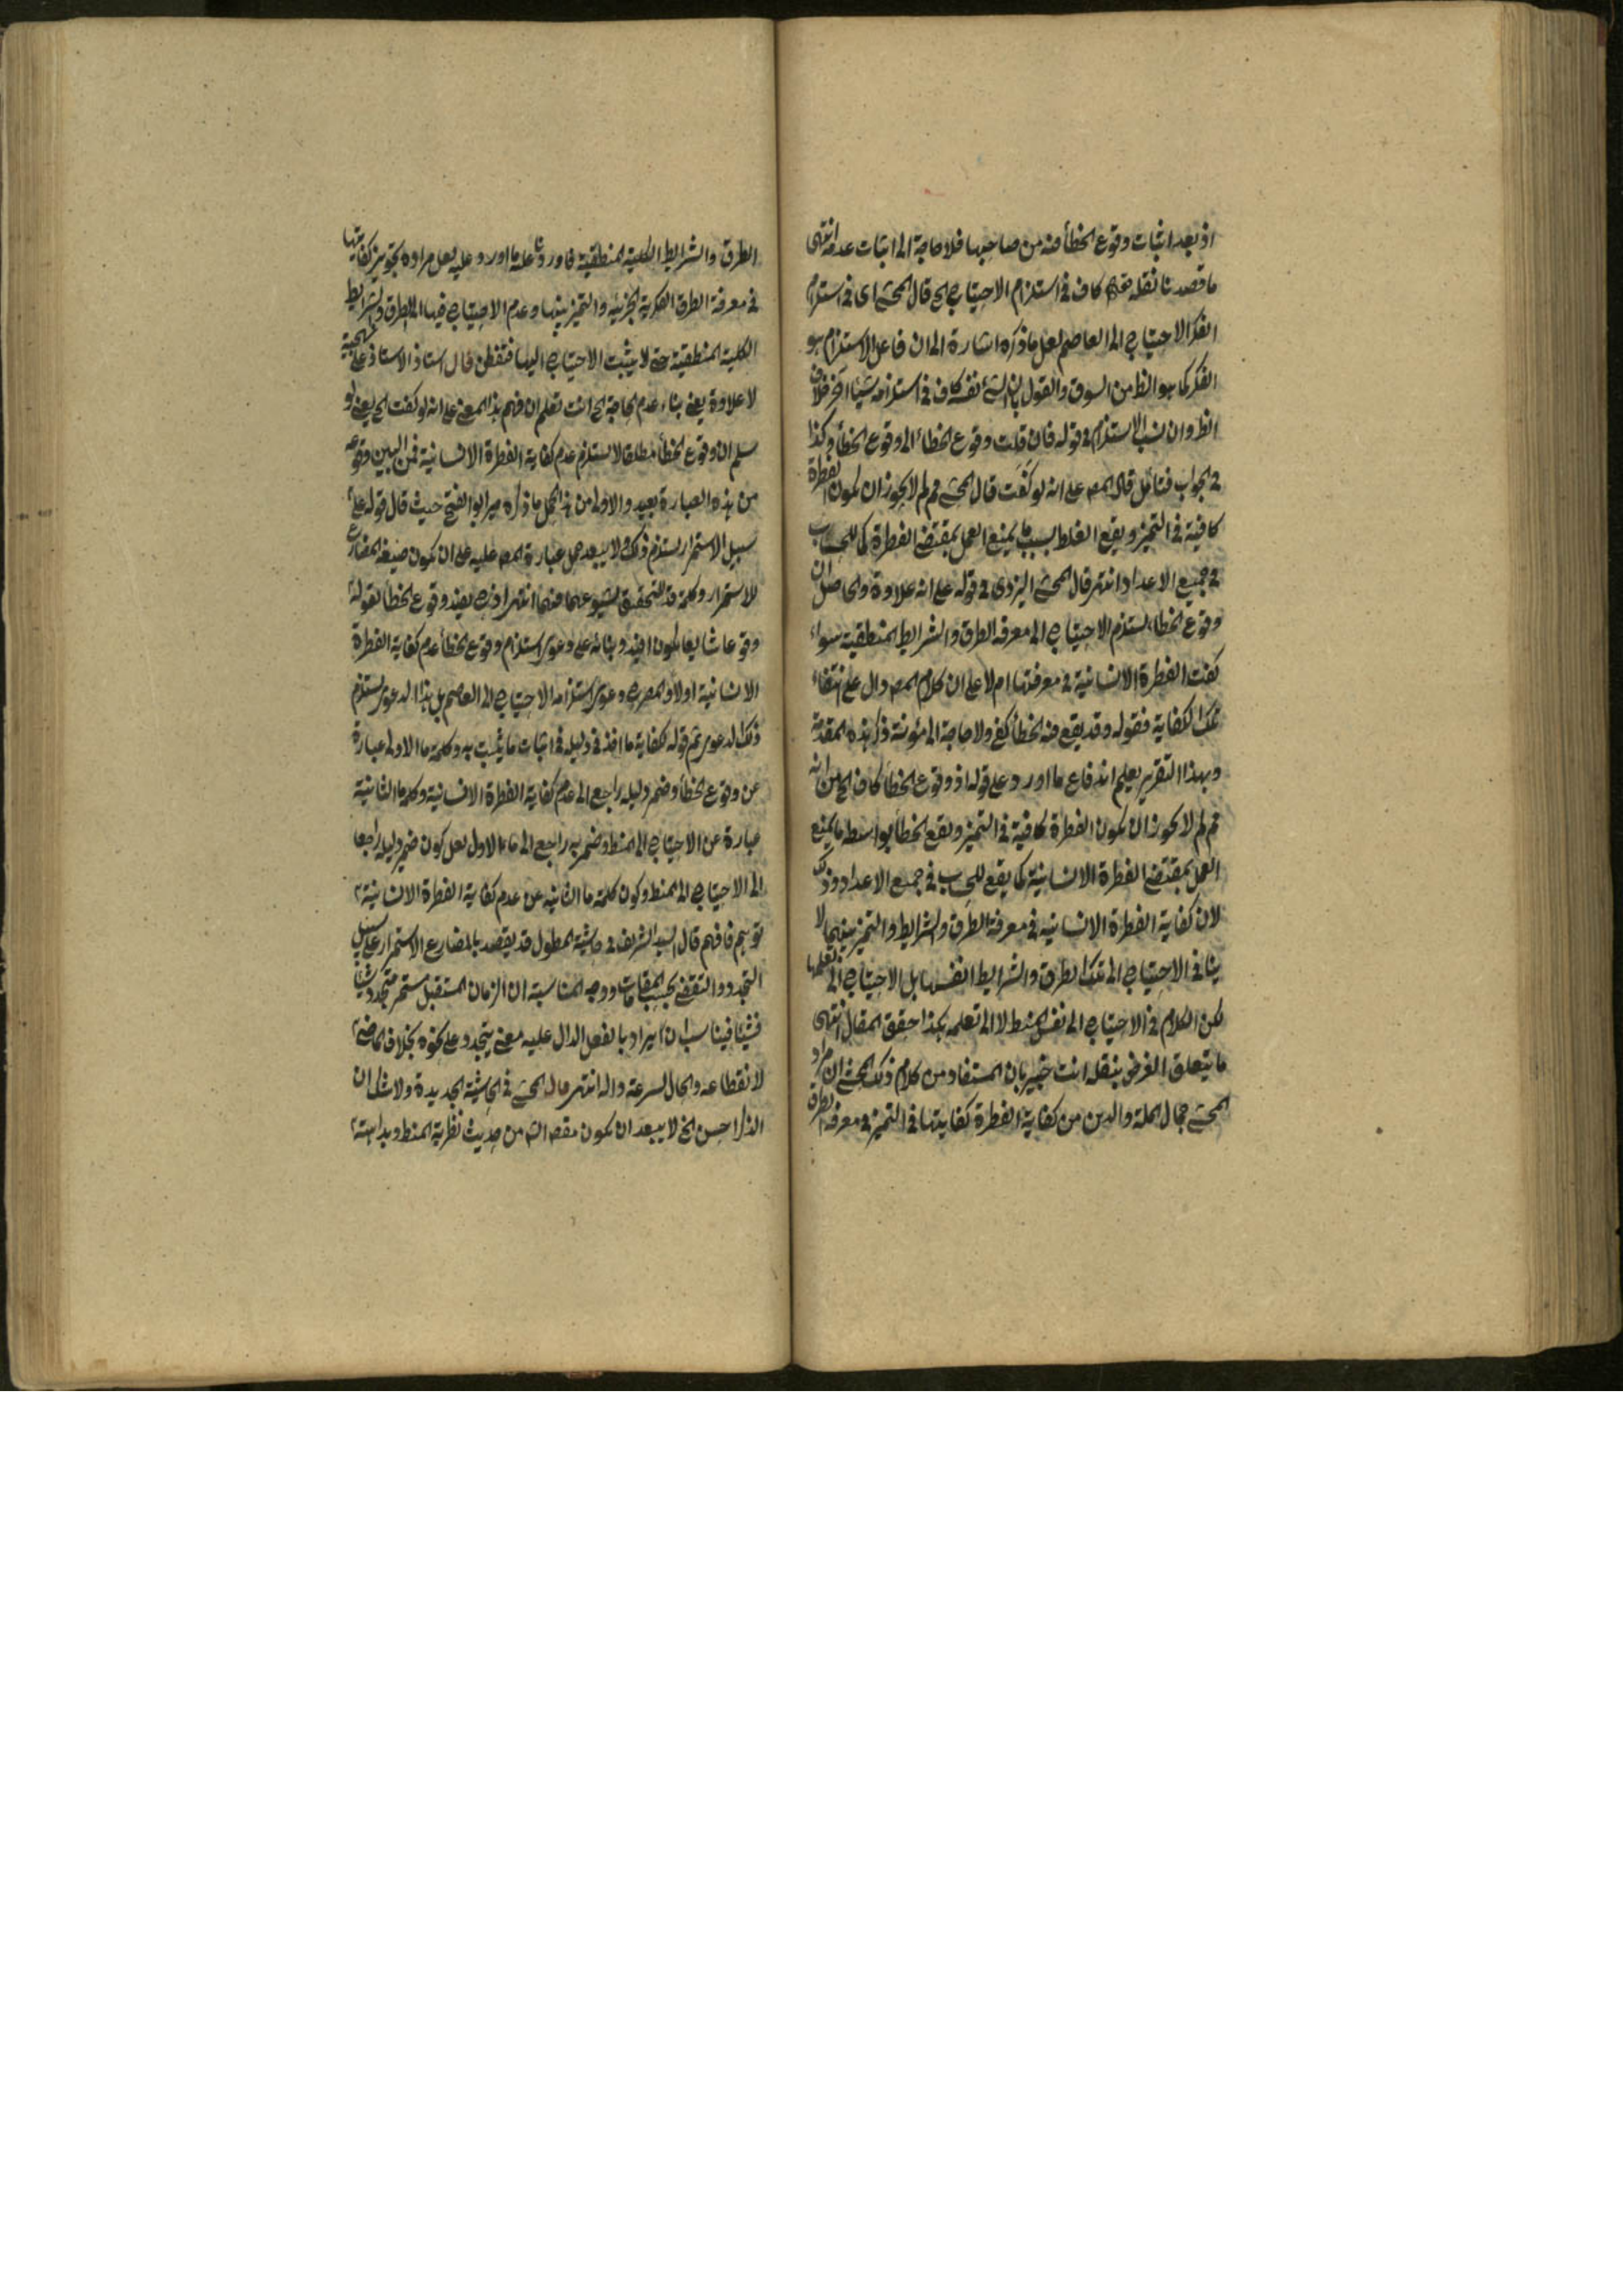 اذ بعد اثبات وقوع الخطأ منه من صاحبها فلا حاجة الى اثبات عدمه انتهى
ما قصدنا نقله قوله كاف فى استلزام الاحتياج الخ قال المحشى اى فى استلزام
الفكر الاحتياج الى العاصم لعل ما ذكره اشارة الى ان فاعل الاستلزام هو
الفكر كما هو الظ من السوق والقول بان الشئ نفسه كاف فى استلزامه شيئا آخر خلاف
الظ وان نسب الاستلزام فى قوله فان قلت وقوع الخطاء الى وقوع الخطأ وكذا
فى الجواب فتأمل قال المصه على انه لو كفت قال المحشى قم لم لا يجوز ان تكون الفطرة
كافية فى التميز ويقع الغلط بسبب ما يمنع العمل بمقتضى الفطرة كما للحساب
فى جميع الاعداد انتهر قال المحشى اليزدى فى قوله على انه علاوة والحاصل ان
وقوع الخطاء يستلزم الاحتياج الى معرفة الطرق والشرايط المنطقية سواء
كفت الفطرة الانسانية فى معرفتها ام لا على ان كلام المصه دال على انتفاء
تلك الكفاية فقوله وقد يقع فيه الخطأ كفى ولا حاجة الى مؤنة ذكر هذه المقدمة
وبهذا التقرير يعلم اندفاع ما اورد على قوله اذ وقوع الخطأ كاف الخ من انه
قم لم لا يجوز ان تكون الفطرة كافية فى التميز ويقع الخطأ بواسطة ما يمنع
العمل بمقتضى الفطرة الانسانية كما يقع للحساب فى جميع الاعداد وذلك
لان كفاية الفطرة الانسانية فى معرفة الطرق والشرايط والتميز بينهما لا
ينافى الاحتياج الى تلك الطرق والشرايط انفسها بل الاحتياج الى تعلمها
لكن الكلام فى الاحتياج الى نفس المنط لا الى تعلمه هكذا حقق المقال انتهى
ما يتعلق الغرض بنقله انت خبير بان المستفاد من كلام ذلك المحشى ان مراد
المحشى جمال الملة والدين من كفاية الفطرة كفايتها فى التميز فى معرفة الطرة
الطرق والشرايط الكلية المنطقية فاورد على ما اورد عليه لعل مراده تجويز كفايتها
فى معرفة الطرق الفكرية الجزئية والتميز بينها وعدم الاحتياج فيها الى الطرق والشرايط
الكلية المنطقية حتى لا يثبت الاحتياج اليها فتفطن قال استاذ الاستاذ على
لا علاوة يعنى بناء عدم الحاجة الخ انت تعلم ان فهم هذا المعنى على انه لو كفت الخ يعنى لو
سلم ان وقوع الخطأ مطلقا لا يستلزم عدم كفاية الفطرة الانسانية فمن البين وقوعه
من هذه العبارة بعيد والاولى من هذا الحمل ما ذكره ميرابو الفتح حيث قال قوله على
سبيل الاستمرار يستلزم ذلك ولا يبعد حمل عبارة المصه عليه على ان تكون صيغة المضارع
للاستمرار وكلمة قد للتحقيق لشيوعهما فيهما انتهر اذ ح يفيد وقوع الخطأ بقوله
وقوعا شايعا تكون افيد وبنائه على دعوى استلزام وقوع الخطأ عدم كفاية الفطرة
الانسانية اولا والمصرح دعوى استلزامه الاحتياج الى العاصم بل هذا الدعوى يستلزم
ذلك الدعوى ثم قوله لكفاية ما اخذ فى دليله فى اثبات ما يثبت به وكلمة ما الاولى عبارة
عن وقوع الخطأ وضمير دليله راجع الى عدم كفاية الفطرة الانسانية وكلمة ما الثانية
عبارة عن الاحتياج الى المنط وضمير به راجع الى ما الاول لعل كون ضمير دليله راجعا
الى الاحتياج الى المنط وكون كلمة ما الثانية عن عدم كفاية الفطرة الانسانية
توهم فافهم قال السيد الشريف فى حاشية المطول قد يقصد بالمضارع الاستمرار على سبيل
التجدد والتقضى بحسب المقامات ووجه المناسبة ان الزمان المستقبل مستمر متجدد شيئا
فشيئا فيناسب ان يراد بالفعل الدال عليه معنى يتجدد على نحوه بخلاف الماضى
لانقطاعه والحال لسرعة زواله انتهر قال المحشى فى الحاشية الجديدة ولا شك ان
الذكر احسن الخ لا يبعد ان تكون مقصه الشه من حديث نظرية المنط وبداهته